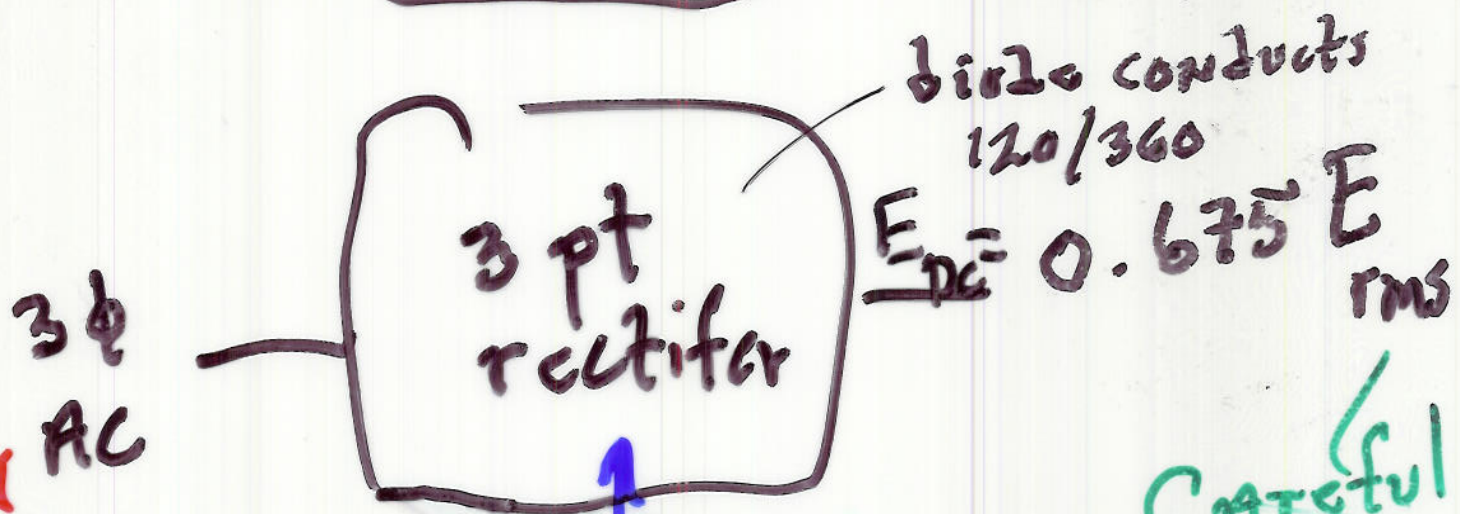 diode conducts
120/360
3 pt
rectifer
E_DC = 0.675 E_rms
3ϕ
AC
Careful